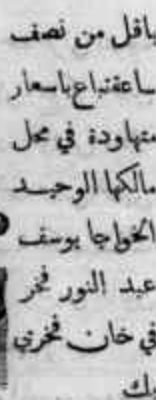 باقل من نصف
ساعة تباع باسعار
متهاودة في محل
مالكها الوحيد
الخواجا يوسف
عبد النور فخر
في خان فخري
بك